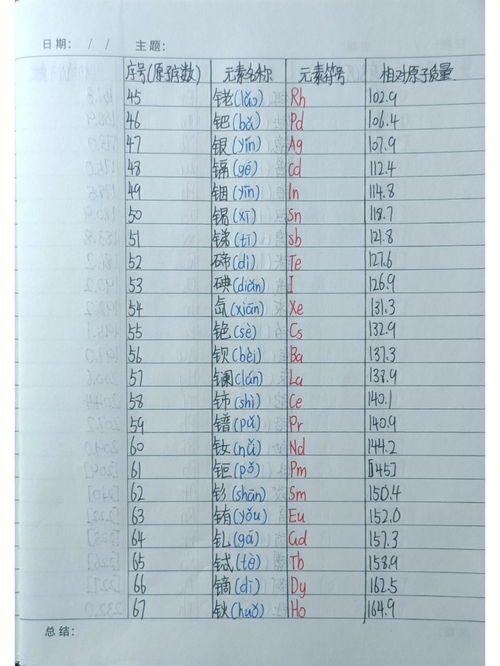 日期： / / 主题：
序号(原子序数) 元素名称 元素符号 相对原子质量
45 铑(lǎo) Rh 102.9
46 钯(bǎ) Pd 106.4
47 银(yín) Ag 107.9
48 镉(gé) Cd 112.4
49 铟(yīn) In 114.8
50 锡(xī) Sn 118.7
51 锑(tī) sb 121.8
52 碲(dì) Te 127.6
53 碘(diǎn) I 126.9
54 氙(xiān) Xe 131.3
55 铯(sè) Cs 132.9
56 钡(bèi) Ba 137.3
57 镧(lán) La 138.9
58 铈(shì) Ce 140.1
59 镨(pǔ) Pr 140.9
60 钕(nǚ) Nd 144.2
61 钷(pǒ) Pm [145]
62 钐(shān) Sm 150.4
63 铕(yǒu) Eu 152.0
64 钆(gá) Gd 157.3
65 铽(tè) Tb 158.9
66 镝(dī) Dy 162.5
67 钬(huǒ) Ho 164.9
总结：